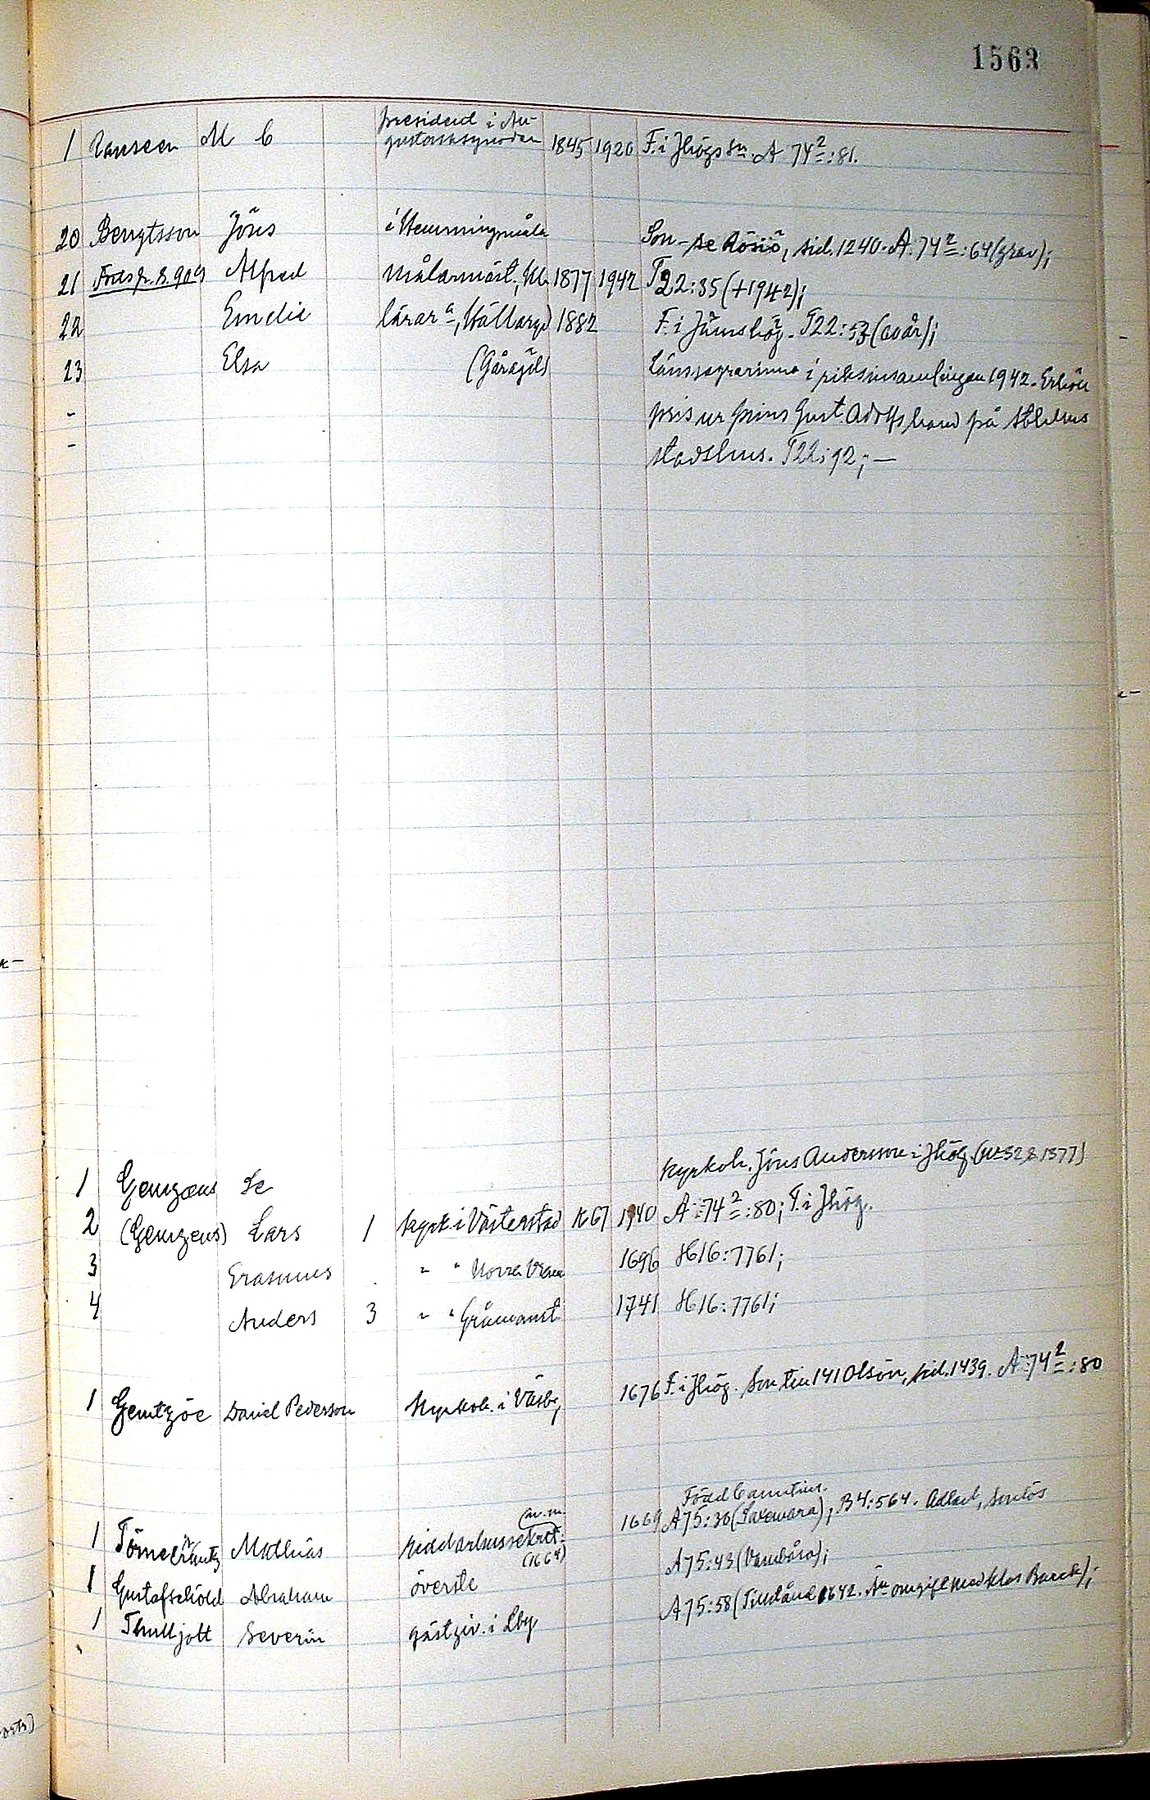 1563
president i Au-
1 Ranseen M C gustanasynoden 1845 1920 F. i Jhögs sn. A 74²:81.
20 Bengtsson Jöns i Hemmingsmåla Son - se Rösiö, sid. 1240. A 74²:64 (grav);
21 Forts. fr. s. 909 Alfred Målarmäst., Kh 1877 1942 T22:35 (+1942);
22 Emelie lärar a, Hällaryd 1882 F. i Jämshög. T22:53 (60 år);
23 Elsa (Gåragöl) Länssegrarinna i riksinsamlingen 1942. Erhöll
- pris ur prins Gust. Adolfs hand på Sthlms
- stadshus. T22:92; —
1 Gemzæus Se kyrkoh. Jöns Andersson i Jhög (nr 32 s 1377)
2 (Gemzeus) Lars 1 kyrk. i Västerstad 1667 1740 A 74²:80; F. i Jhög.
3 Erasmus " " Norra Vram 1696 H16:7761;
4 Anders 3 " " Gråmanst. 1741 H16:7761;
1 Gemtzöe Daniel Pedersson kyrkoh. i Väsby 1676 F. i Jhög. Son till 141 Olsson, sid. 1439. A 74²:80
Född Camitius.
(m.m.
1 Törnecrantz Mathias riddarhussekret. 1669 A75:36 (Saxemara); B4:564. Adlad, sonlös
(1664)
1 Gustafschöld Abraham överste A75:43 (Vambåsa);
1 Thulljott Severin gästgiv. i Rby A75:58 (Tillstånd 1642. Än omgift med Klas Baeck);